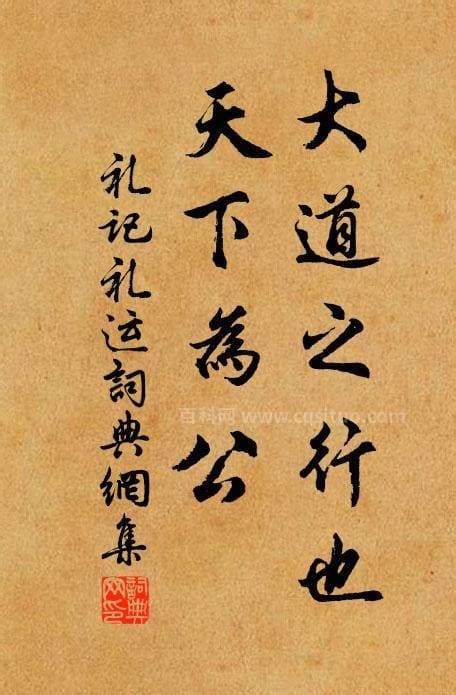 大道之行也
天下為公
礼记礼运詞典網集
詞典
百科网 www.cgsituo.com